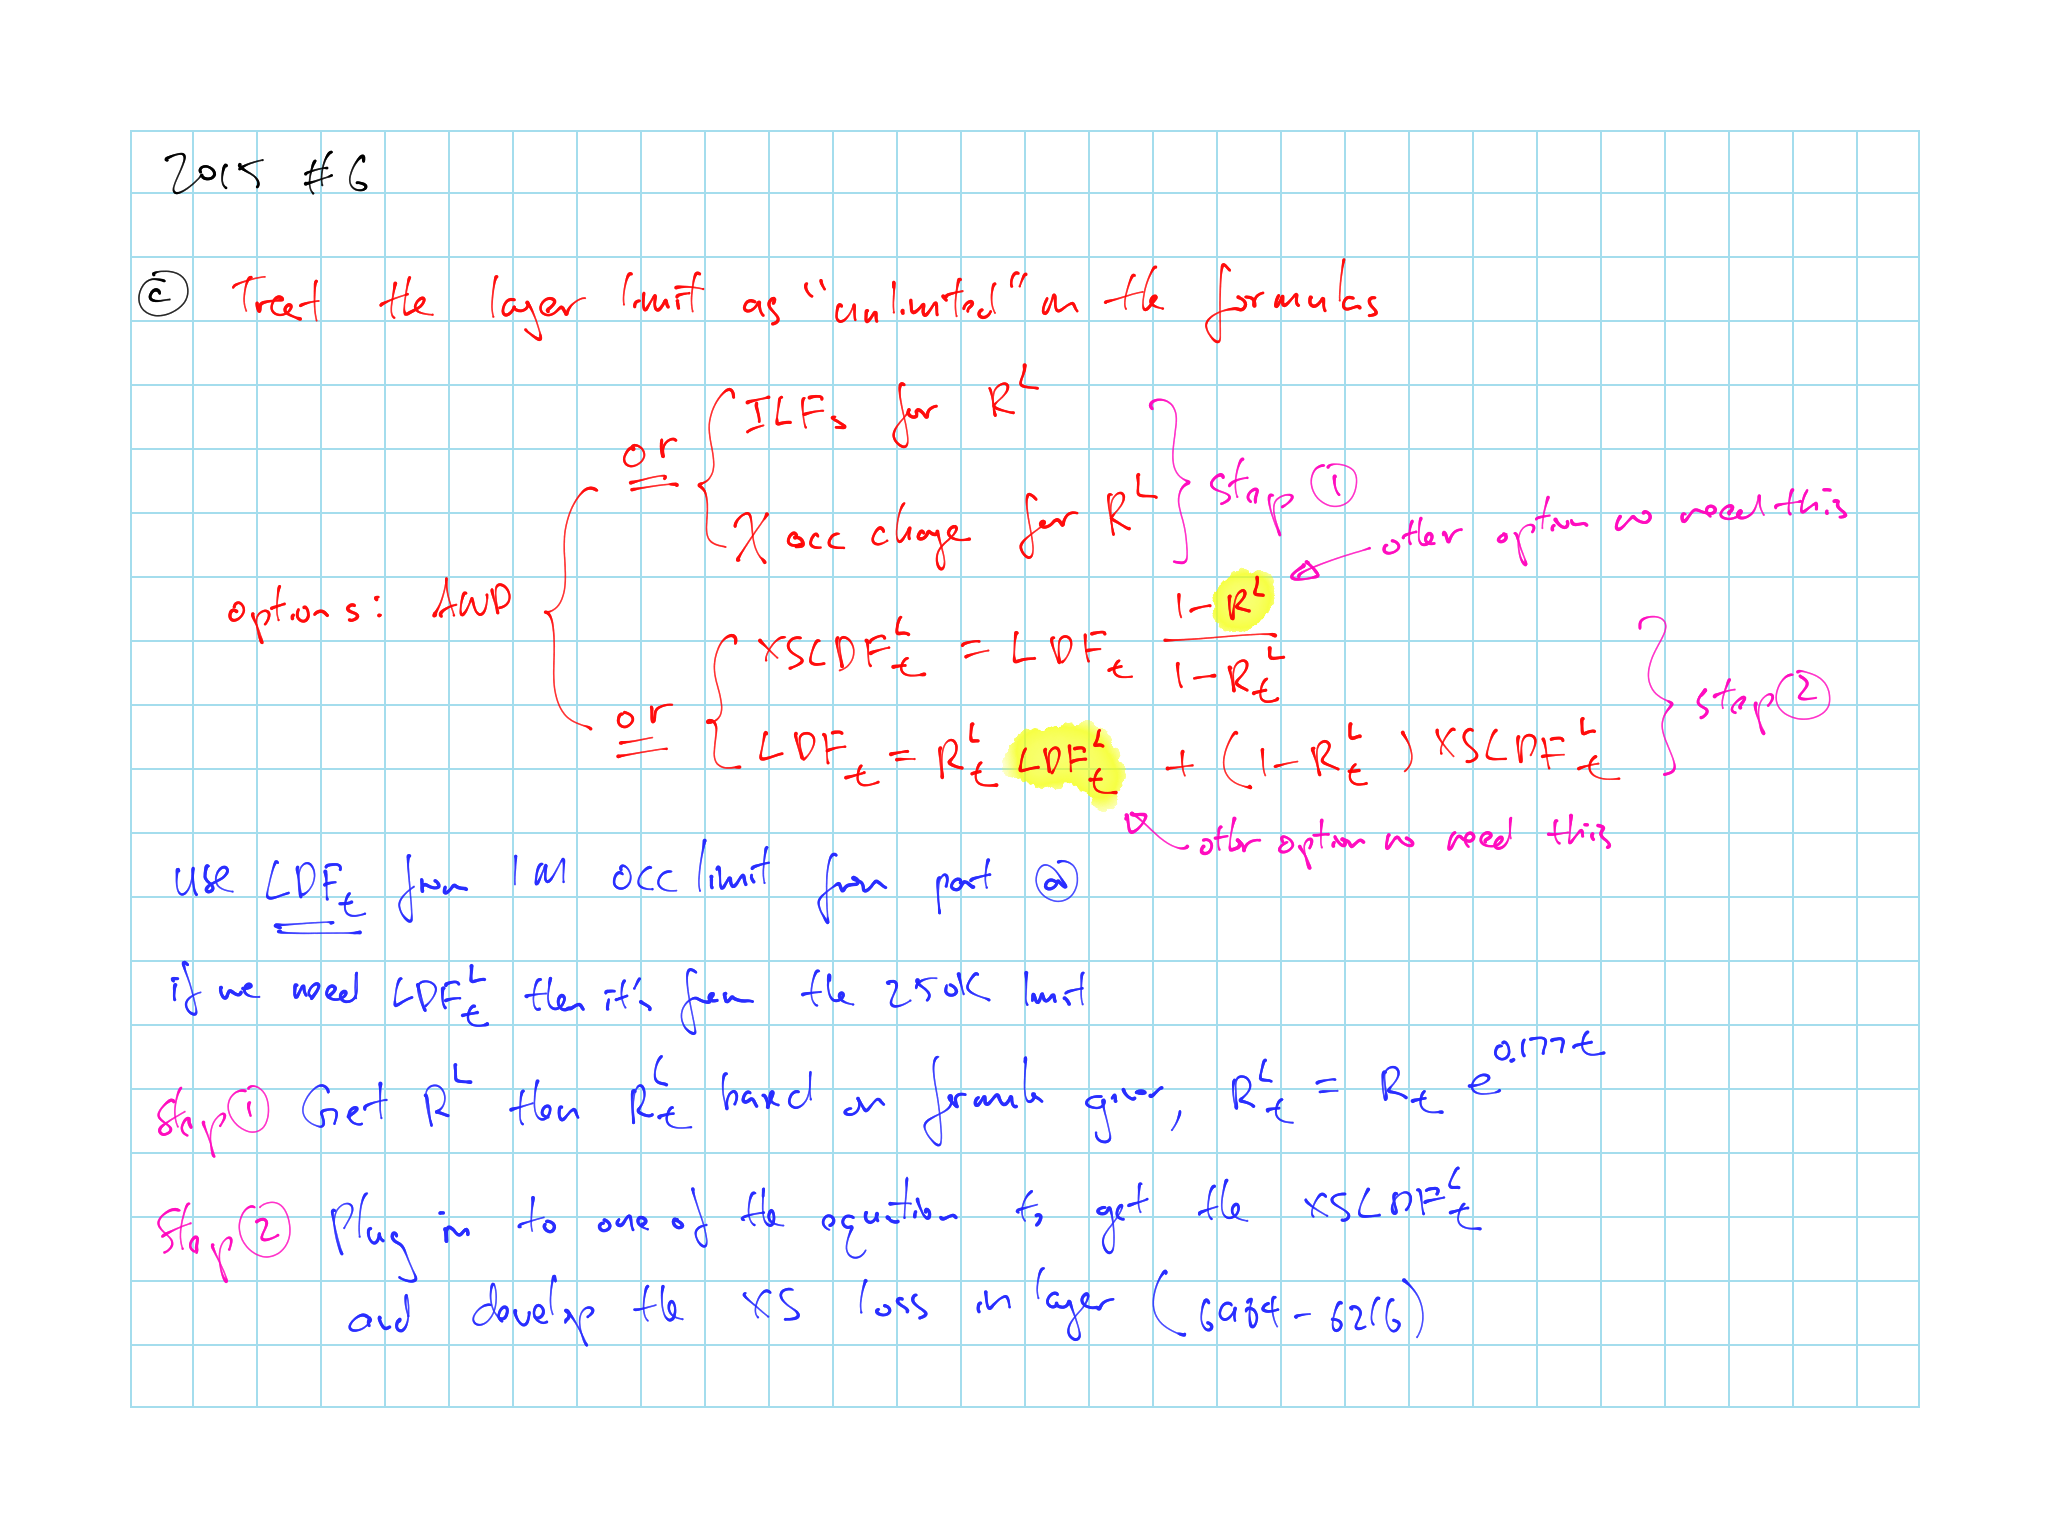 2015 #6
ⓒ Treat the layer limit as "unlimited" in the formulas
ILFs for R^L
or
X occ charge for R^L
step ①
other option no need this
options: AND
XSLDF_t^L = LDF_t (1-R^L)/(1-R_t^L)
or
LDF_t = R_t^L LDF_t^L + (1-R_t^L) XSLDF_t^L
step ②
other option no need this
use LDF_t from 1M occ limit from part ⓐ
if we need LDF_t^L then it's from the 250K limit
step ① Get R^L then R_t^L based on formula given, R_t^L = R_t e^0.177t
step ② Plug in to one of the equation to get the XSLDF_t^L
and develop the XS loss in layer (6984-6216)